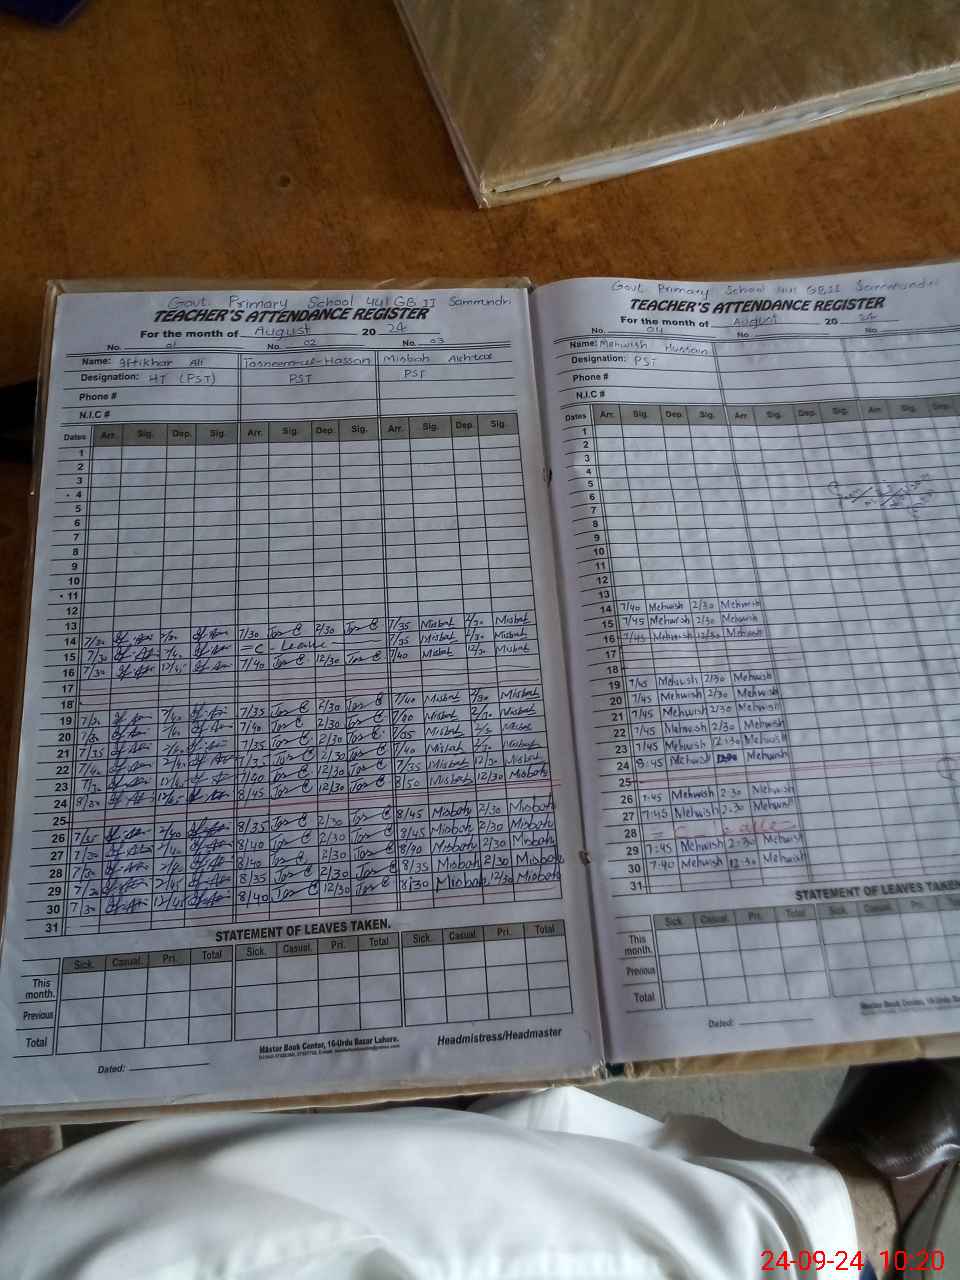 Govt. Primary School 441 GB II Sammundri
TEACHER'S ATTENDANCE REGISTER
For the month of August 20 24
No. 01 No. 02 No. 03
Name: Iftikhar Ali Tasneem-ul-Hassan Misbah Akhtar
Designation: HT (PST) PST PST
Phone #
N.I.C #
Dates Arr. Sig. Dep. Sig. Arr. Sig. Dep. Sig. Arr. Sig. Dep. Sig.
1
2
3
4
5
6
7
8
9
10
11
12
13
14 7/30 7/30 2/30 7/35 Misbah 2/30 Misbah
15 7/30 = C - Leave 7/35 Misbah 2/30 Misbah
16 7/30 7/40 12/30 7/40 Misbah 12/30 Misbah
17
18
19 7/35 2/30 7/40 Misbah 2/30 Misbah
20 7/40 2/30 Misbah 2/30 Misbah
21 7/35 7/35 2/30 7/35 Misbah 2/30
22 7/35 2/30 7/40 Misbah 2/30 Misbah
23 7/40 12/30 7/35 Misbah Misbah
24 8/45 12/30 8/50 Misbah 12/30 Misbah
25
26 8/35 2/30 8/45 Misbah 2/30 Misbah
27 8/40 2/30 8/45 Misbah 2/30 Misbah
28 7/30 8/40 2/30 8/40 Misbah 2/30 Misbah
29 8/35 2/30 8/35 Misbah 2/30 Misbah
30 7/30 12/45 8/40 12/30 8/30 Misbah 12/30 Misbah
31
STATEMENT OF LEAVES TAKEN.
Sick. Casual. Pri. Total Sick. Casual. Pri. Total Sick. Casual. Pri. Total
This month.
Previous
Total
Master Book Center, 16-Urdu Bazar Lahore.
Headmistress/Headmaster
Dated:
Govt. Primary School 441 GB II Sammundri
TEACHER'S ATTENDANCE REGISTER
For the month of August 20 24
No. 04 No. No.
Name: Mehwish Hussain
Designation: PST
Phone #
N.I.C #
Dates Arr. Sig. Dep. Sig. Arr. Sig. Dep. Sig. Arr. Sig. Dep.
1
2
3
4
5
6
7
8
9
10
11
12
13
14 7/40 Mehwish 2/30 Mehwish
15 7/45 Mehwish 2/30 Mehwish
16 7/45 Mehwish 12/30 Mehwish
17
18
19 7/45 Mehwish 2/30 Mehwish
20 7/45 Mehwish 2/30 Mehwish
21 7/45 Mehwish 2/30 Mehwish
22 7/45 Mehwish 2/30 Mehwish
23 7:45 Mehwish 12:30 Mehwish
24 8:45 Mehwish Mehwish
25
26 7:45 Mehwish 2:30 Mehwish
27 7:45 Mehwish 2:30 Mehwish
28
29 7:45 Mehwish 2:30 Mehwish
30 7:40 Mehwish 12:30 Mehwish
31
STATEMENT OF LEAVES TAKEN
Sick. Casual. Pri. Total Sick. Casual. Pri. Total
This month.
Previous
Total
Dated:
Master Book Center, 16-Urdu
24-09-24 10:20